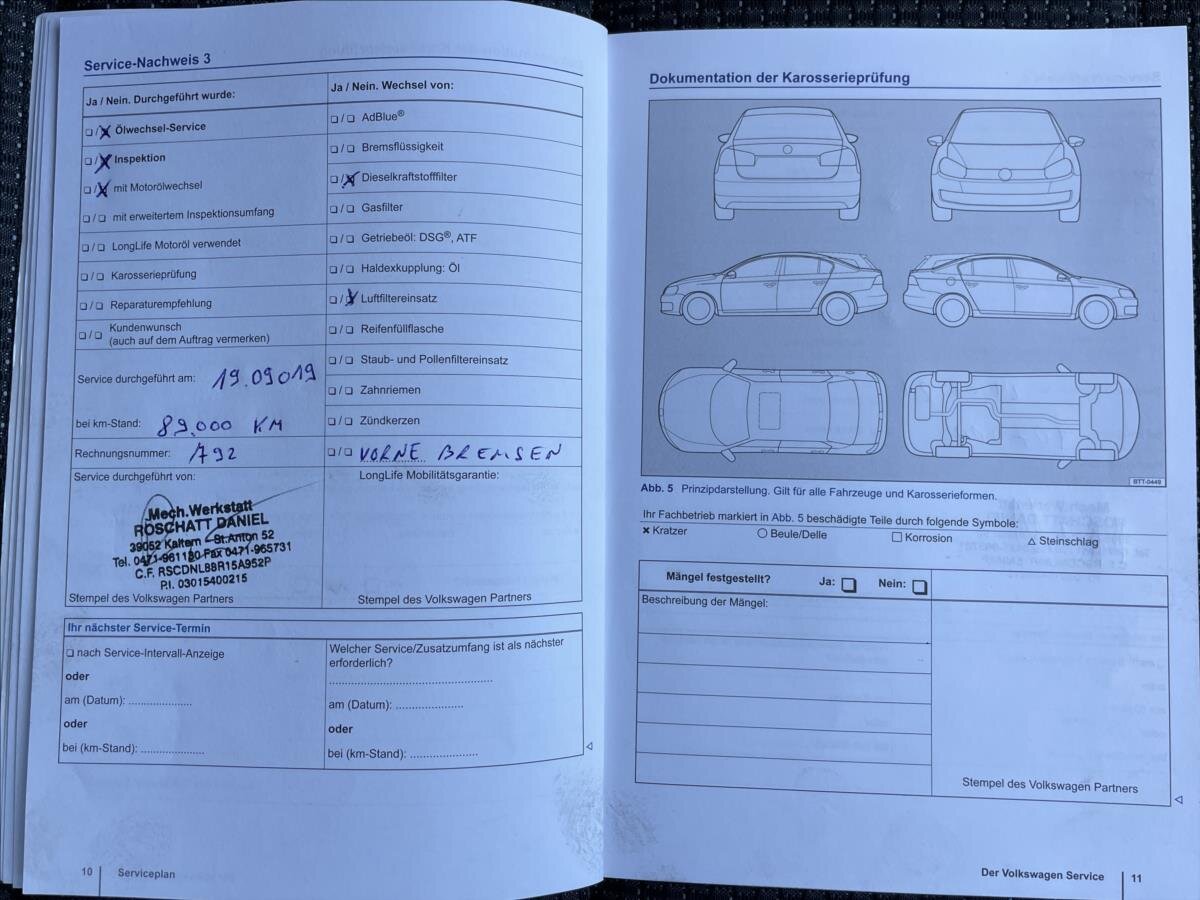 Service-Nachweis 3
Ja / Nein. Durchgeführt wurde:
❏ / ❏ Ölwechsel-Service
❏ / ❏ Inspektion
❏ / ❏ mit Motorölwechsel
❏ / ❏ mit erweitertem Inspektionsumfang
❏ / ❏ LongLife Motoröl verwendet
❏ / ❏ Karosserieprüfung
❏ / ❏ Reparaturempfehlung
❏ / ❏ Kundenwunsch
(auch auf dem Auftrag vermerken)
Service durchgeführt am: 19.09019
bei km-Stand: 89.000 KM
Rechnungsnummer: 792
Service durchgeführt von:
Mech.Werkstatt
ROSCHATT DANIEL
39052 Kaltern - St.Anton 52
Tel. 0471-961180 Fax 0471-965731
C.F. RSCDNL88R15A952P
P.I. 03015400215
Stempel des Volkswagen Partners
Ja / Nein. Wechsel von:
❏ / ❏ AdBlue®
❏ / ❏ Bremsflüssigkeit
❏ / ❏ Dieselkraftstofffilter
❏ / ❏ Gasfilter
❏ / ❏ Getriebeöl: DSG®, ATF
❏ / ❏ Haldexkupplung: Öl
❏ / ❏ Luftfiltereinsatz
❏ / ❏ Reifenfüllflasche
❏ / ❏ Staub- und Pollenfiltereinsatz
❏ / ❏ Zahnriemen
❏ / ❏ Zündkerzen
❏ / ❏ VORNE BREMSEN
LongLife Mobilitätsgarantie:
Stempel des Volkswagen Partners
Ihr nächster Service-Termin
❏ nach Service-Intervall-Anzeige
oder
am (Datum): .....................
oder
bei (km-Stand): .....................
Welcher Service/Zusatzumfang ist als nächster
erforderlich?
......................................................
am (Datum): .....................
oder
bei (km-Stand): .....................
10 Serviceplan
Dokumentation der Karosserieprüfung
BTT-0449
Abb. 5 Prinzipdarstellung. Gilt für alle Fahrzeuge und Karosserieformen.
Ihr Fachbetrieb markiert in Abb. 5 beschädigte Teile durch folgende Symbole:
× Kratzer ○ Beule/Delle □ Korrosion △ Steinschlag
Mängel festgestellt? Ja: ❏ Nein: ❏
Beschreibung der Mängel:
Stempel des Volkswagen Partners
Der Volkswagen Service 11